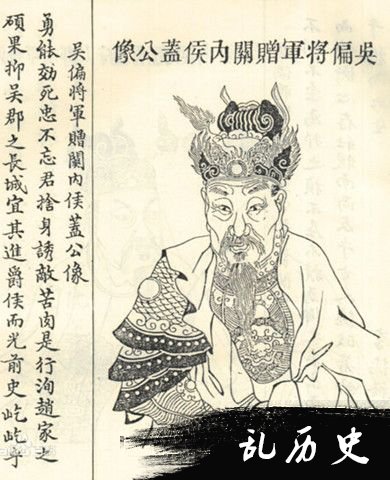 吳偏將軍贈關內侯蓋公像
吳偏將軍贈關內侯蓋公像
勇能効死忠不忘君捨身誘敵苦肉是行洵趙家之
碩果抑吳郡之長城宜其進爵侯而光前史屹屹乎
乱历史